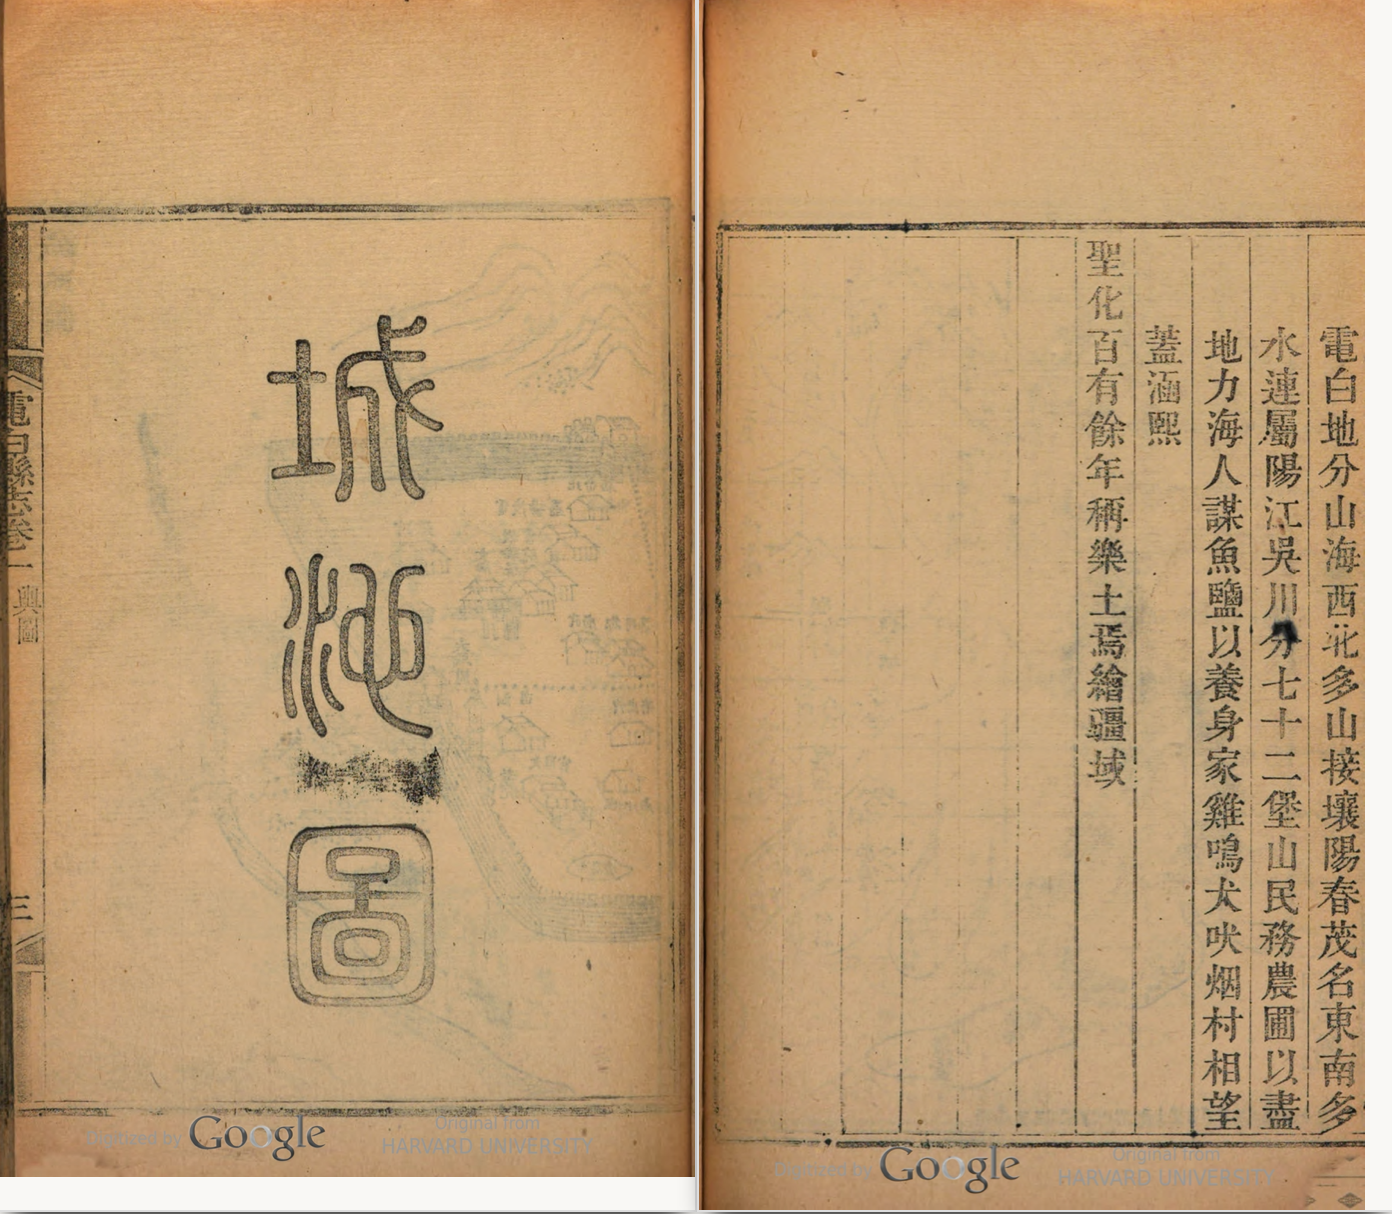 電白地分山海西北多山接壤陽春茂名東南多
水連屬陽江吳川分七十二堡山民務農圃以盡
地力海人謀魚鹽以養身家雞鳴犬吠烟村相望
蓋涵熙
聖化百有餘年稱樂土焉繪疆域
城池圖
電白縣志卷一
輿圖
三
Digitized by Google
Original from
HARVARD UNIVERSITY
Digitized by Google
Original from
HARVARD UNIVERSITY